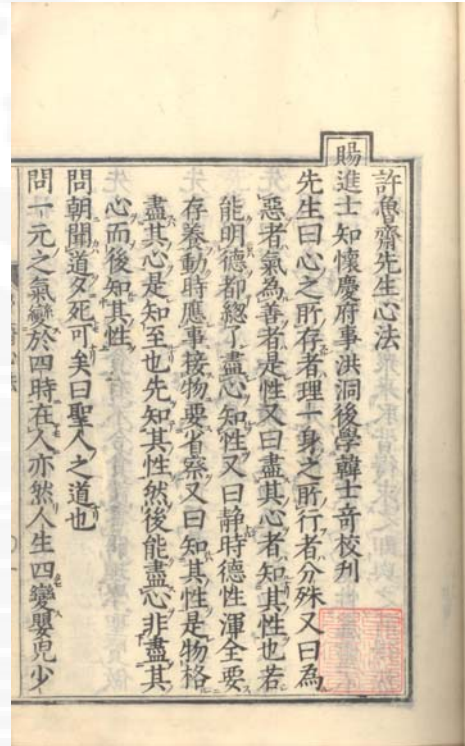 許魯齋先生心法
賜進士知懷慶府事洪洞後學韓士竒校刊
先生曰心之所存者理一身之所行者分殊又曰為
惡者氣為善者是性又曰盡其心者知其性也若
能明德都總了盡心知性又曰静時德性渾全要
存養動時應事接物要省察又曰知其性是物格
盡其心是知至也先知其性然後能盡心非盡其
心而後知其性
問朝聞道夕死可矣曰聖人之道也
問一元之氣變於四時在人亦然人生四變嬰兒少